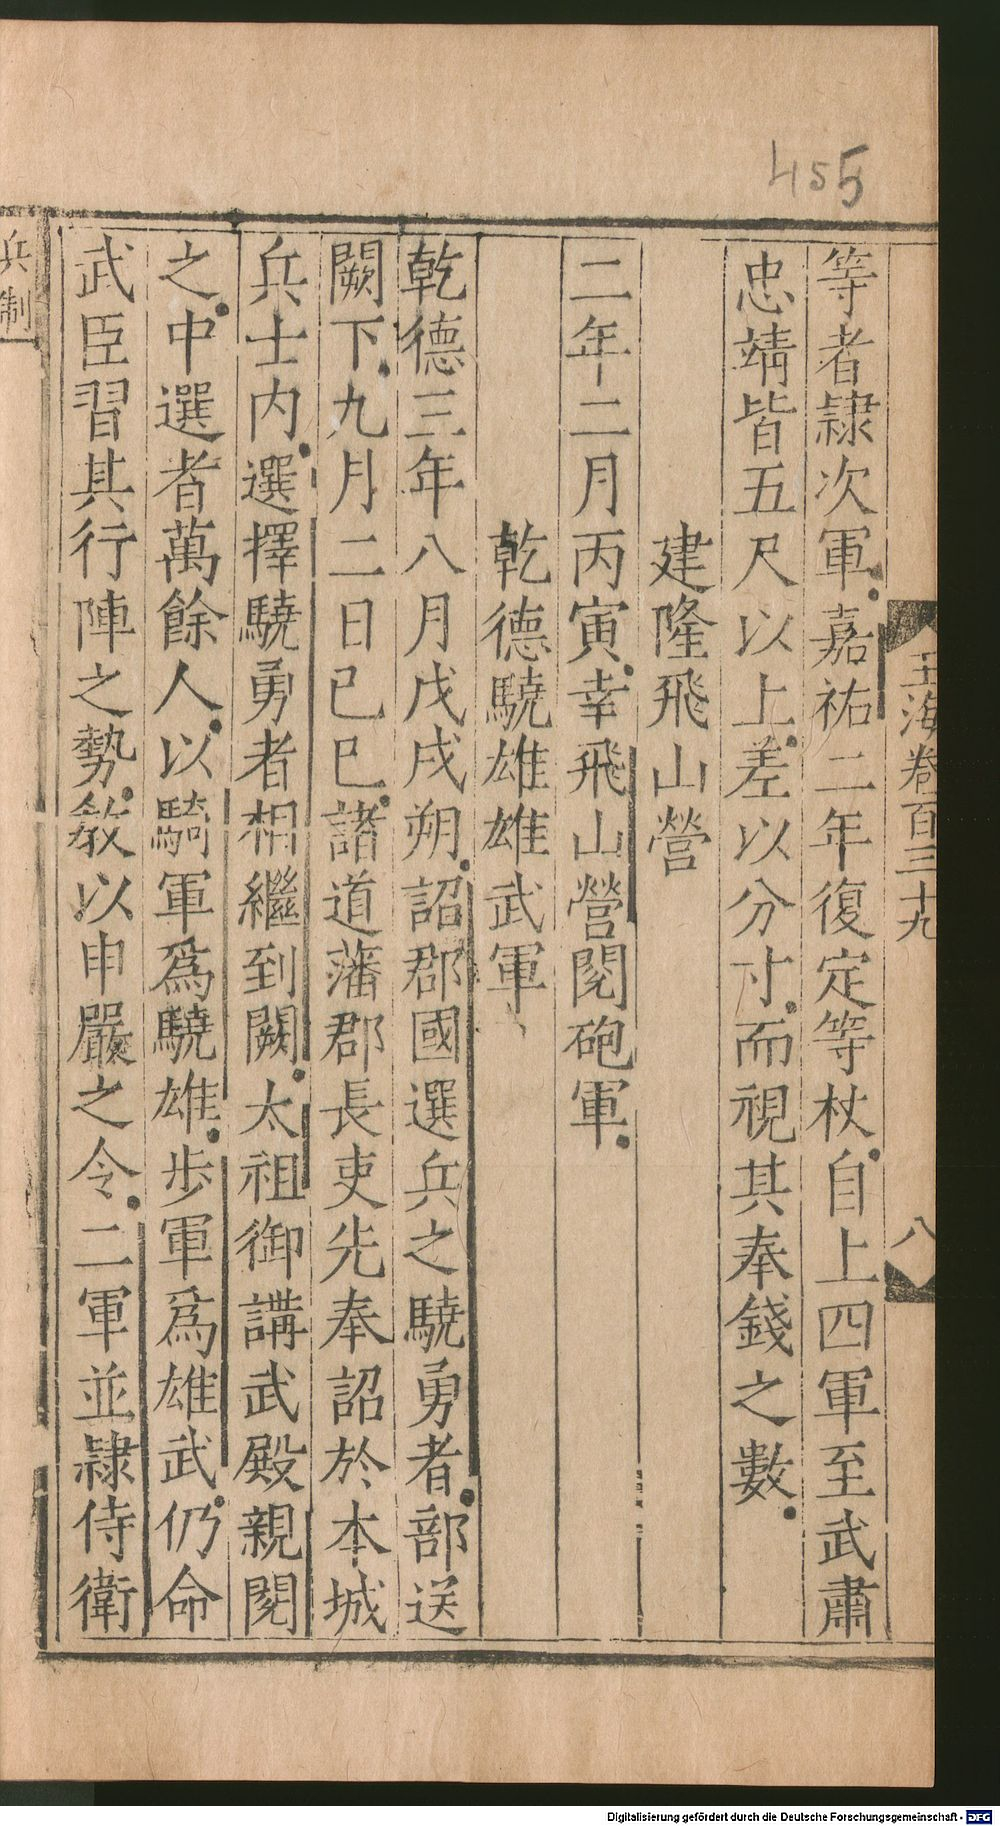 455
玉海卷百三十九
八
等者隷次軍嘉祐二年復定等杖自上四軍至武肅
忠靖皆五尺以上差以分寸而視其奉錢之數
建隆飛山營
二年二月丙寅幸飛山營閱砲軍
乾德驍雄雄武軍
乾德三年八月戊戌朔詔郡國選兵之驍勇者部送
闕下九月二日己巳諸道藩郡長吏先奉詔於本城
兵士内選擇驍勇者相繼到闕太祖御講武殿親閱
之中選者萬餘人以騎軍爲驍雄步軍爲雄武仍命
武臣習其行陣之勢敎以申嚴之令二軍並隷侍衛
兵制
Digitalisierung gefördert durch die Deutsche Forschungsgemeinschaft - DFG